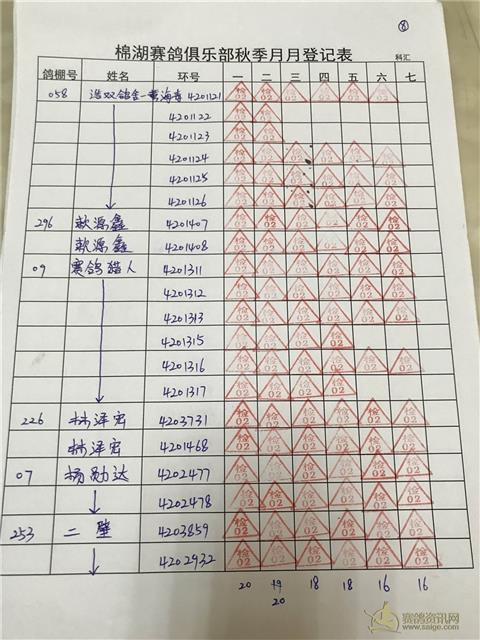 ⑧
棉湖赛鸽俱乐部秋季月月登记表
科汇
鸽棚号 姓名 环号 一 二 三 四 五 六 七
058 浩双鸽舍-黄海青 4201121 检02 检02 检02 检02 检02 检02
4201122 检02 检02
4201123 检02 检02
4201124 检02 检02 检02 检02 检02 检02
4201125 检02 检02 检02 检02 检02 检02
4201126 检02 检02 检02 检02 检02 检02
296 歀源鑫 4201407 检02 检02 检02 检02 检02 检02
歀源鑫 4201408 检02 检02 检02 检02 检02 检02
09 赛鸽猎人 4201311 检02 检02 检02 检02 检02 检02
4201312 检02 检02 检02 检02 检02 检02
4201313 检02 检02 检02 检02 检02 检02
4201315 检02 检02 检02 检02
4201316 检02 检02 检02 检02 检02 检02
4201317 检02 检02 检02 检02
226 林泽宏 4203731 检02 检02 检02 检02 检02 检02
林泽宏 4201468 检02 检02 检02 检02 检02 检02
07 杨勋达 4202477 检02 检02 检02 检02 检02 检02
4202478 检02 检02 检02 检02 检02 检02
253 二壁 4203859 检02 检02 检02 检02 检02 检02
4202932 检02 检02 检02 检02 检02 检02
20 19 18 18 16 16
20
赛鸽资讯网
www.saige.com